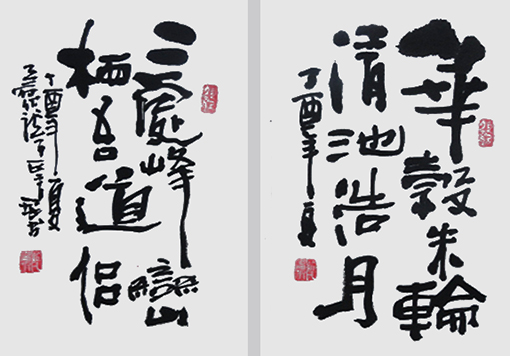 華轂朱輪
清池浩月
丁酉年夏
三處峰巒
栖吾道侶
丁酉年夏